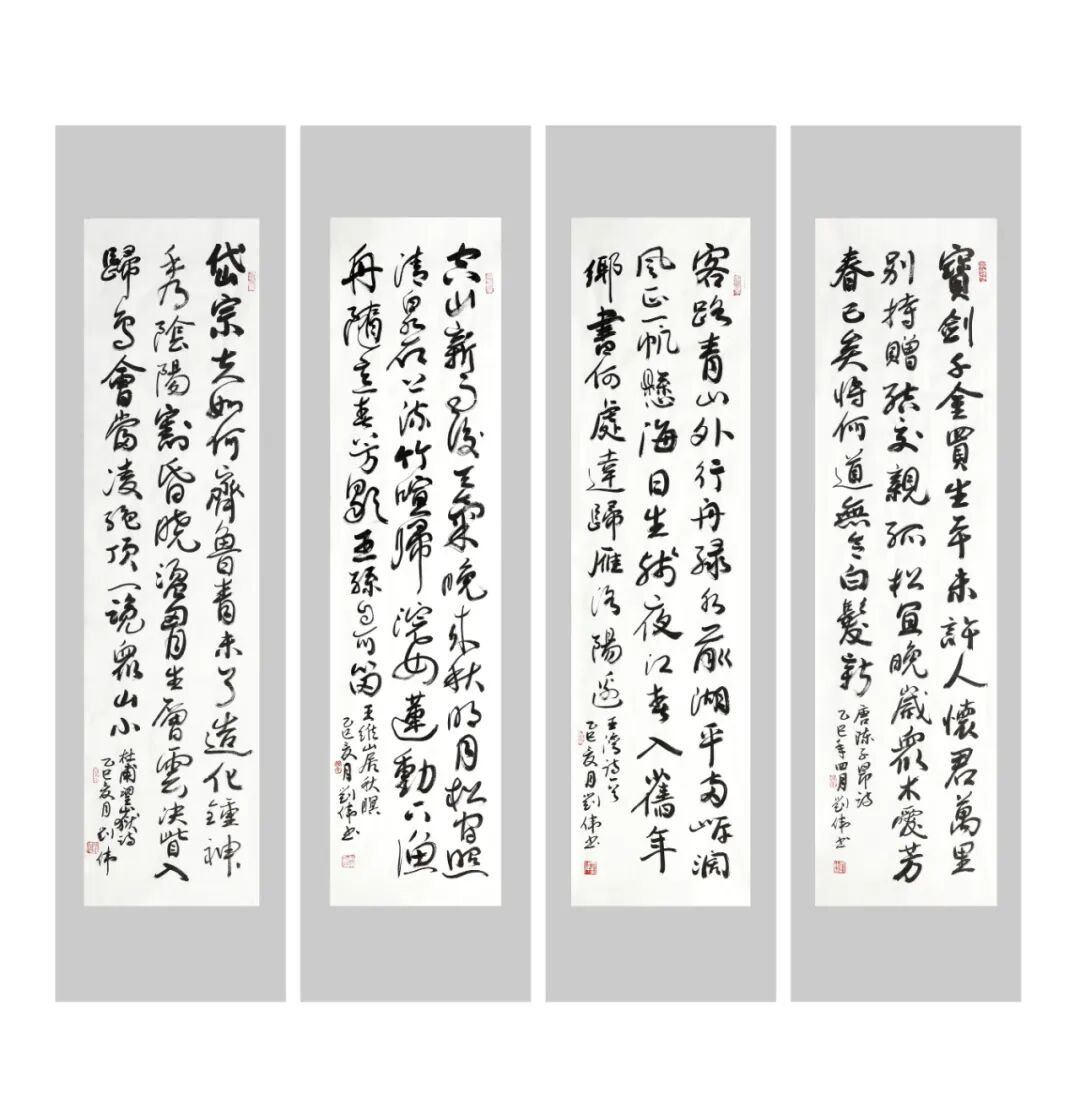 寶劍千金買生平未許人懷君萬里
別持贈結交親孤松宜晚歲眾木愛芳
春已矣將何道無令白髮新
唐陳子昂詩
乙巳年四月劉偉書
客路青山外行舟綠水前湖平兩岸闊
風正一帆懸海日生殘夜江春入舊年
鄉書何處達歸雁洛陽邊
王灣詩一首
乙巳夏月劉偉書
空山新雨後天氣晚來秋明月松間照
清泉石上流竹喧歸浣女蓮動下漁
舟隨意春芳歇王孫自可留
王維山居秋暝
乙巳夏月劉偉書
岱宗夫如何齊魯青未了造化鐘神
秀乃陰陽割昏曉盪胸生層雲決眥入
歸鳥會當凌絕頂一覽眾山小
杜甫望嶽詩
乙巳夏月劉偉